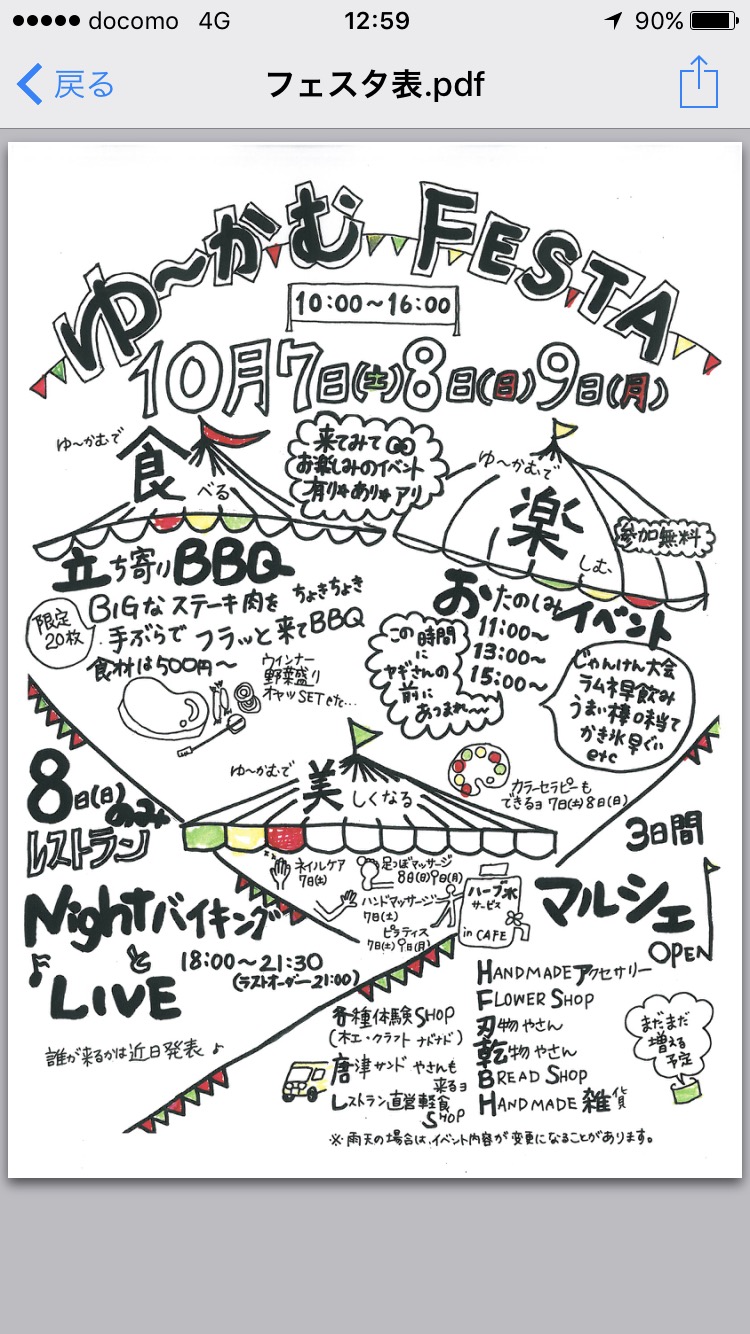 docomo 4G 12:59 90%
戻る フェスタ表.pdf
ゆ〜かむ FESTA
10:00〜16:00
10月7日(土)8日(日)9日(月)
ゆ〜かむで
食べる
来てみて
お楽しみのイベント
有り☆あり☆アリ
ゆ〜かむで
楽しむ
参加無料
立ち寄りBBQ
限定
20枚
BIGなステーキ肉を ちょきちょき
手ぶらで フラッと来てBBQ
食材は500円〜
ウインナー
野菜盛り
オヤツSET etc...
おたのしみイベント
11:00〜
13:00〜
15:00〜
この時間
に
ヤギさんの
前に
あつまれ〜
じゃんけん大会
ラムネ早飲み
うまい棒の味当て
かき氷早ぐい
etc
カラーセラピーも
できるヨ 7日(土)8日(日)
ゆ〜かむで
美しくなる
ネイルケア
7日(土)
足つぼマッサージ
8日(日)9日(月)
ハンドマッサージ
7日(土)
ピラティス
7日(土)9日(月)
ハーブ水
サービス
in CAFE
8日(日)のみ
レストラン
Nightバイキング
と
LIVE
18:00〜21:30
(ラストオーダー21:00)
誰が来るかは近日発表♪
3日間
マルシェ
OPEN
各種体験SHOP
(木工・クラフト ナドナド)
唐津サンドやさんも
来るヨ
レストラン直営軽食
SHOP
HANDMADEアクセサリー
FLOWER SHOP
刃物やさん
乾物やさん
BREAD SHOP
HANDMADE 雑貨
まだまだ
増える
予定
※雨天の場合は、イベント内容が変更になることがあります。